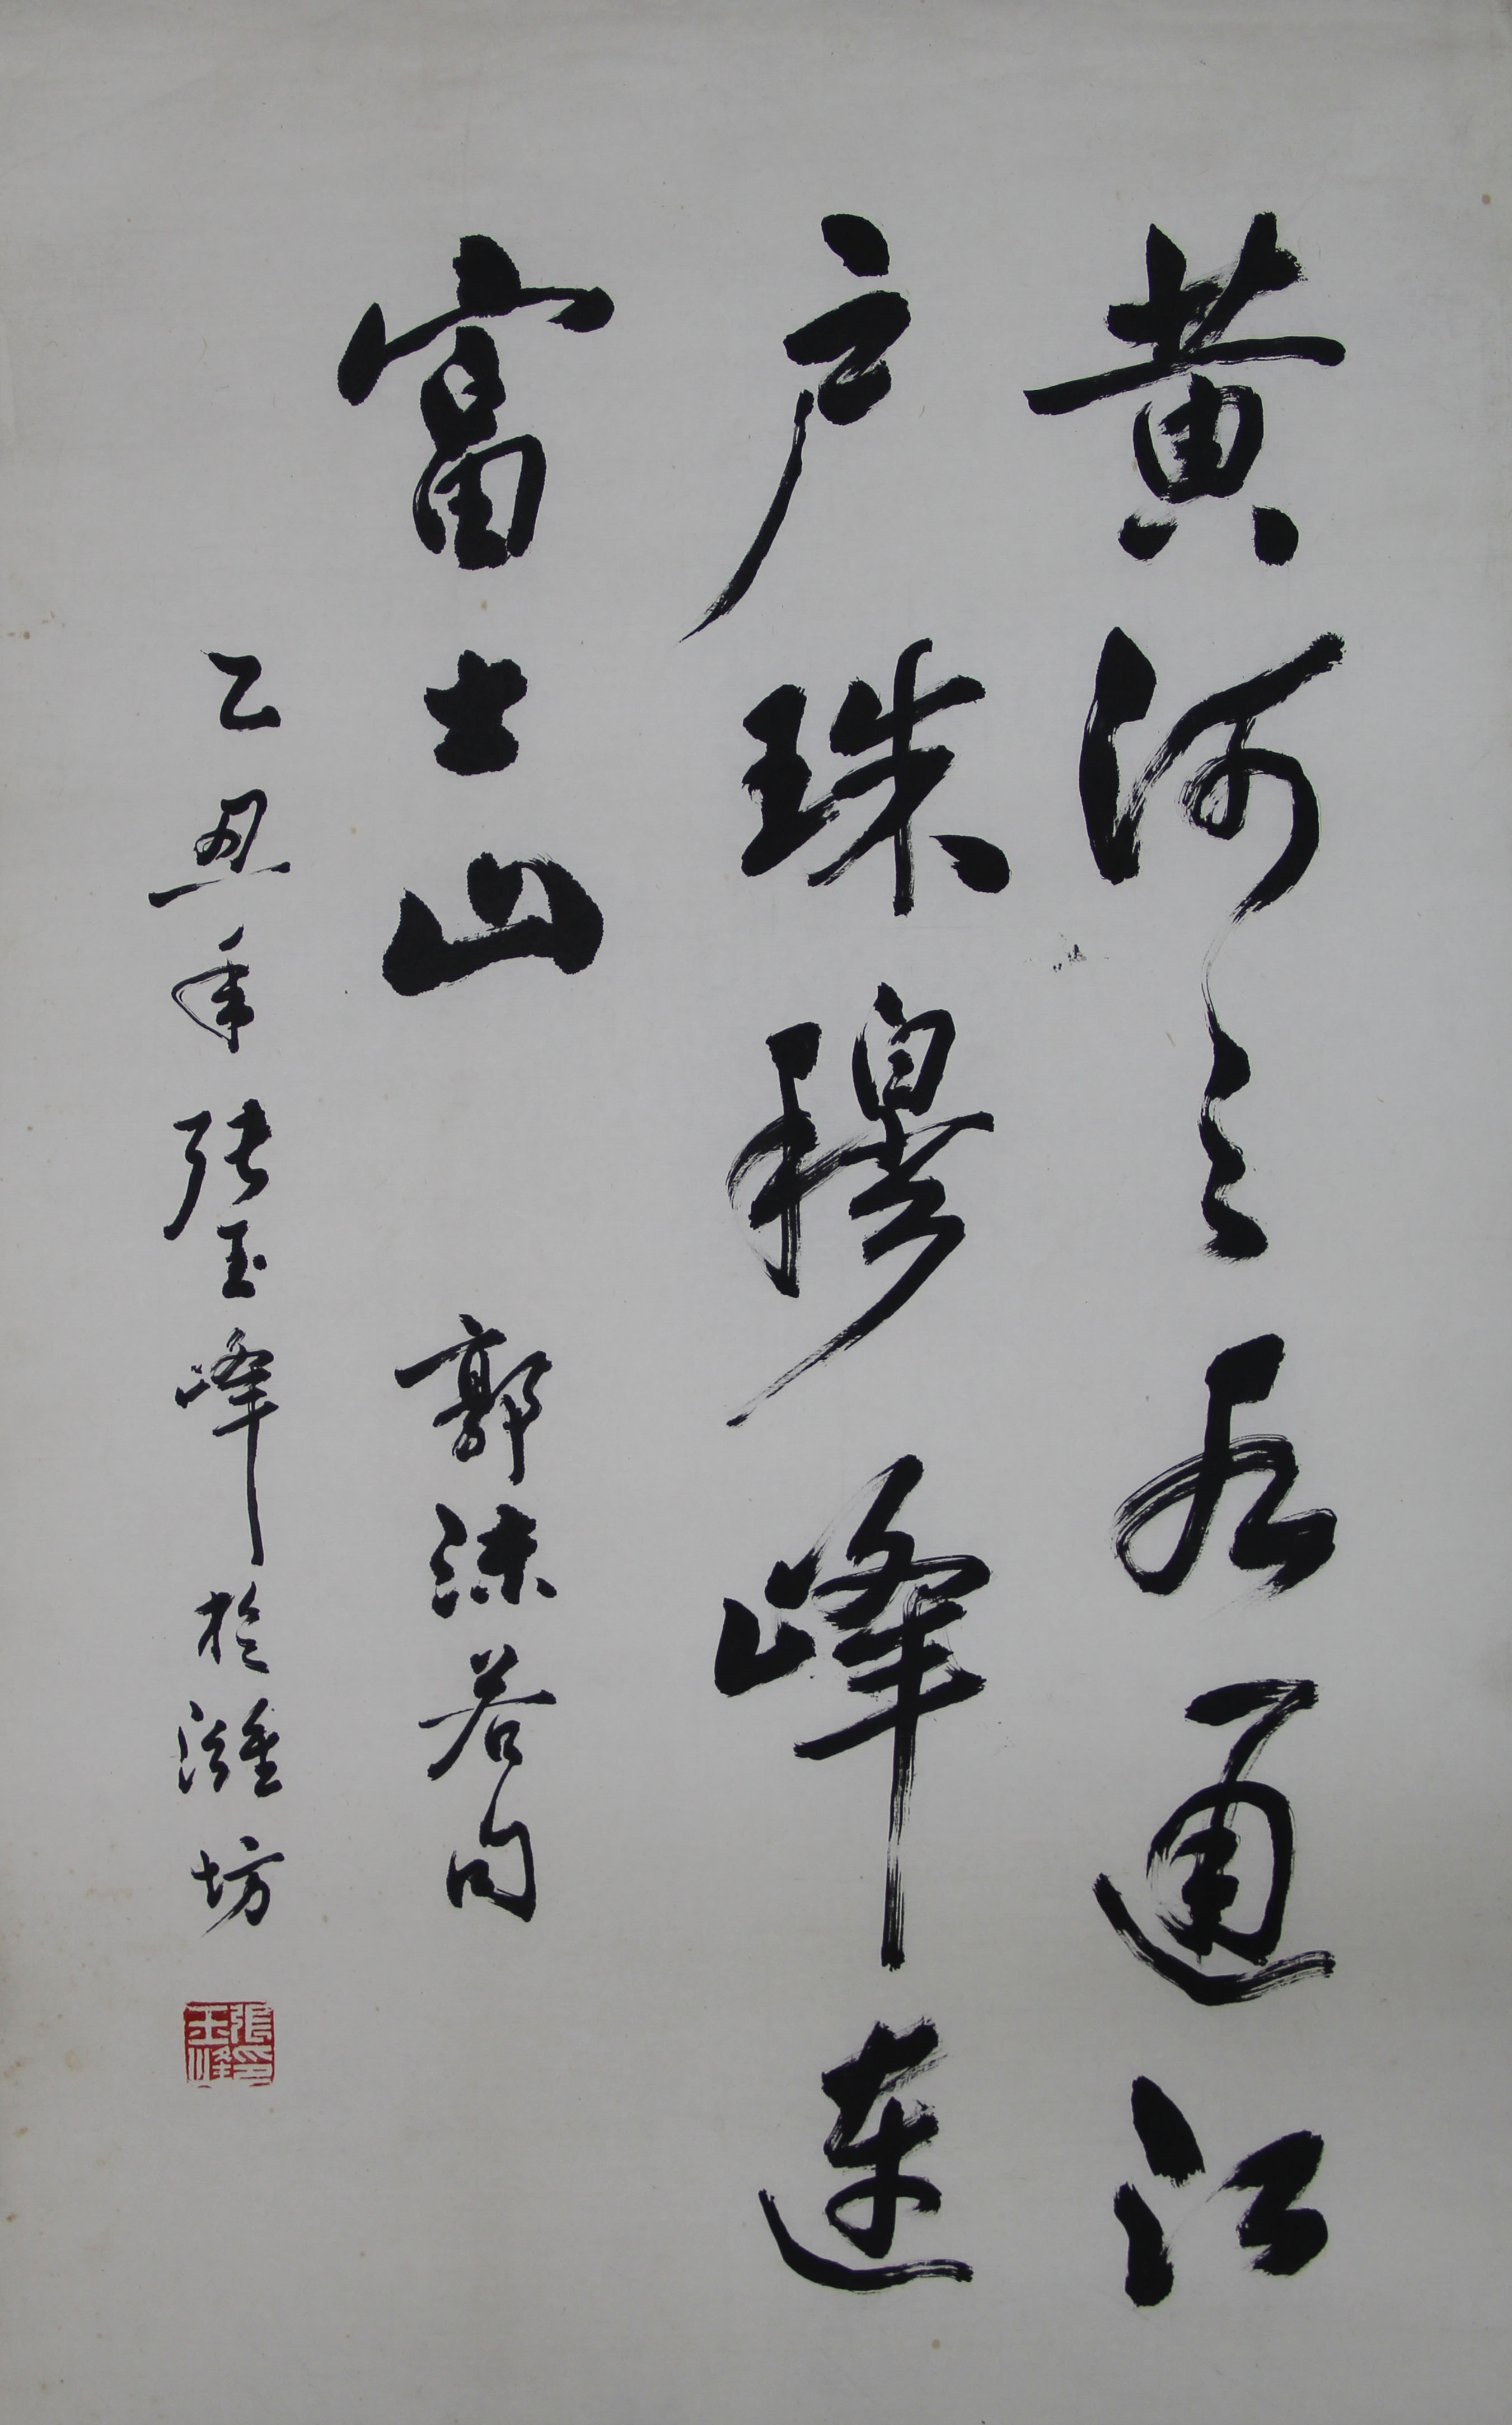 黄河之水通江
户珠穆峰連
富士山 郭沫若句
乙丑年張玉峰於濰坊
張玉峰印